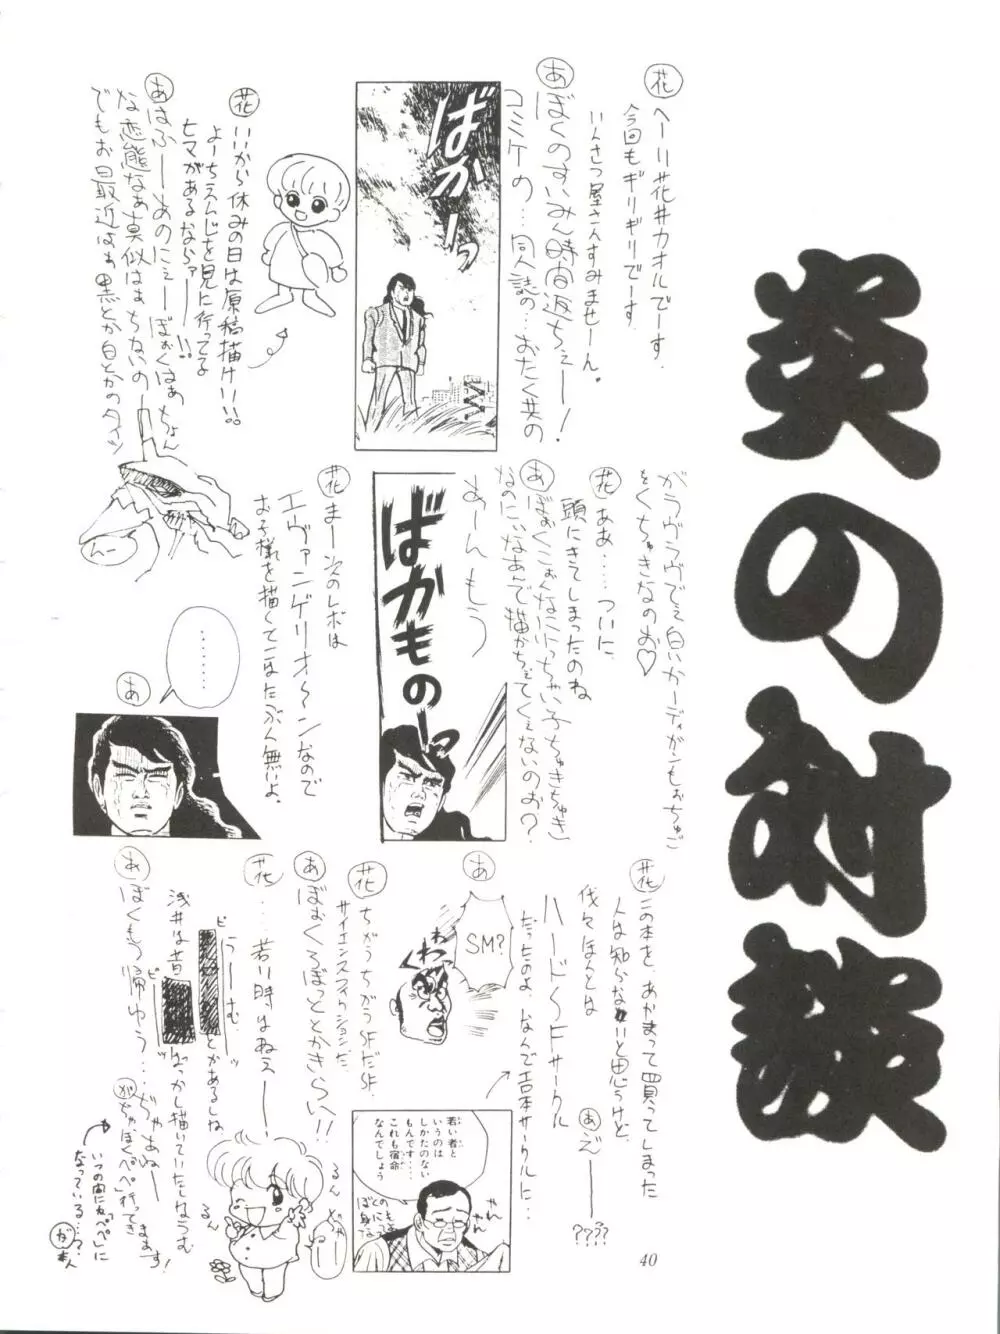 炎の対談
花 へーい花井カオルでーす。
今回もギリギリでーす
いんさつ屋さんすみませーん。
あ ぼくのすいみん時間返ちぇー!
コミケの…同人誌の…おたく共の
ばかーっ
花 いいから休みの日は原稿描け!!!!
よーちえんじを見に行ってる
ヒマがあるならァー!!
あ はふーあのにぇーぼぉくはぁちょん
な変態なぁ真似はぁちないの
でもお最近はぁ黒とか白とかのタイツ
がラヴラヴでぇ白いカーディガンもぉちゅご
をくちゅきなのぉ♡
花 ああ……ついに
頭にきてしまったのね
あ ぼぉくこぉんなにいっちゃい子ちゅきちゅき
なのにいなあんで描かちぇてくえないのぉ?
あーんもう
ばかものーっ
花 まー次のレボは
エヴァンゲリオ〜ンなので
お子様を描くてことはたぶん無いよ。
んー
………
あ
花 この本を、あかまって買ってしまった
人は知らないと思うけど、
伐々ほんとは
ハード〜SFサークル
だったのよ、なんでエロ本サークルに…
あぞー????
あ
SM?
くわっ
若い者と
いうのは
しかたのない
もんです…
これも宿命
なんでしょう
花 ちがうちがうSFだSF
サイエンスフィクションだ
あ ぼぉくろぼっととかきらい!!
花 …若い時はねえ——
ピーうーむ。ッとかあるしね
浅井は昔ピーッばっかし描いていたしなうむ
あ ぼくもう帰ゆう…ぢゃあねー
がちゃぼく"ペペ"行ってきまぁす!
いつの間にか「ペペ」に
なっている…?
が 本人
るんるん
40